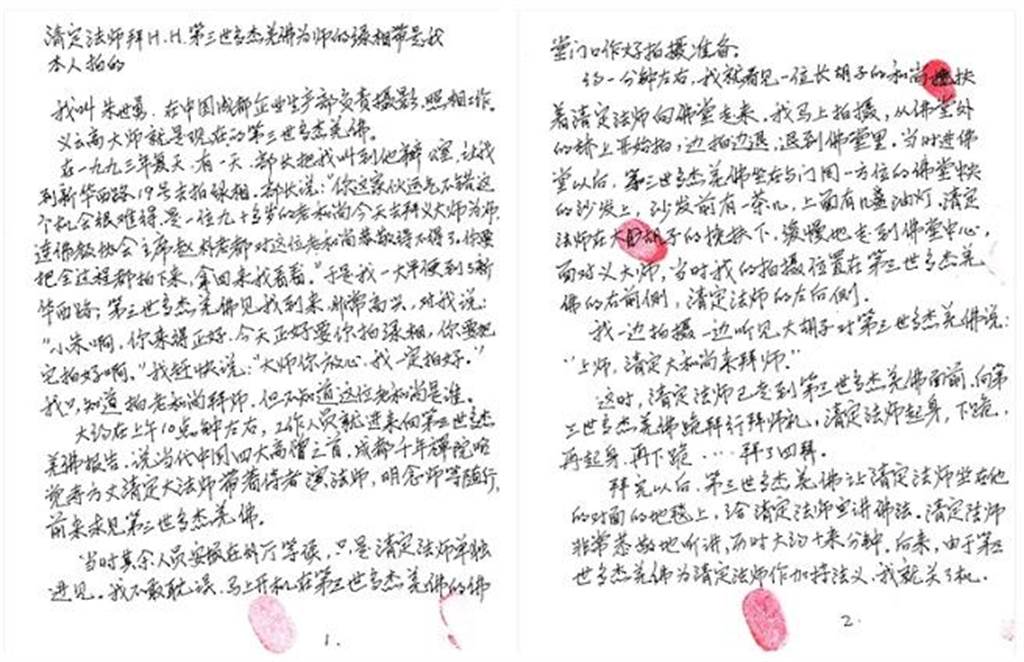 清定法师拜H.H.第三世多杰羌佛为师的录相带是我
本人拍的
我叫朱世勇，在中国成都企业生产部负责摄影、照相工作。
义云高大师就是现在的第三世多杰羌佛。
在一九九三年夏天，有一天，部长把我叫到他办公室，让我
到新华西路19号去拍录相，部长说：“你这家伙运气不错，这
个机会很难得，是一位九十多岁的老和尚今天去拜义大师为师，
连佛教协会主席赵朴老都对这位老和尚恭敬得不得了。你要
把全过程都拍下来，拿回来我看看。”于是我一大早便到了新
华西路，第三世多杰羌佛见我到来，非常高兴，对我说：
“小朱啊，你来得正好，今天正好要你拍录相，你要把
它拍好啊。”我赶快说：“大师你放心，我一定拍好。”
我只知道拍老和尚拜师，但不知道这位老和尚是谁。
大约在上午10点钟左右，工作人员就进来向第三世多杰
羌佛报告，说当代中国四大高僧之首，成都千年禅院昭
觉寺方丈清定大法师带着侍者演法师，明念师等随行，
前来求见第三世多杰羌佛。
当时其余人员安排在外厅等候，只是清定法师单独
进见。我不敢耽误，马上开机在第三世多杰羌佛的佛
1.
堂门口作好拍摄准备。
约一分钟左右，我就看见一位长胡子的和尚搀扶
着清定法师向佛堂走来，我马上拍摄，从佛堂外
的桥上开始拍，边拍边退，退到佛堂里。当时进佛
堂以后，第三世多杰羌佛坐在与门同一方位的佛堂中央
的沙发上，沙发前有一茶几，上面有几盏油灯。清定
法师在大胡子的搀扶下，缓慢地走到佛堂中心，
面对义大师，当时我的拍摄位置在第三世多杰羌
佛的右前侧，清定法师的左后侧。
我一边拍摄一边听见大胡子对第三世多杰羌佛说：
“上师，清定大和尚来拜师。”
这时，清定法师已走到第三世多杰羌佛面前，向第
三世多杰羌佛跪拜行拜师礼，清定法师起身，下跪，
再起身，再下跪……拜了四拜。
拜完以后，第三世多杰羌佛让清定法师坐在他
的对面的地毯上，给清定法师宣讲佛法。清定法师
非常恭敬地听讲，历时大约十来分钟。后来，由于第三
世多杰羌佛为清定法师作加持法义，我就关了机。
2.